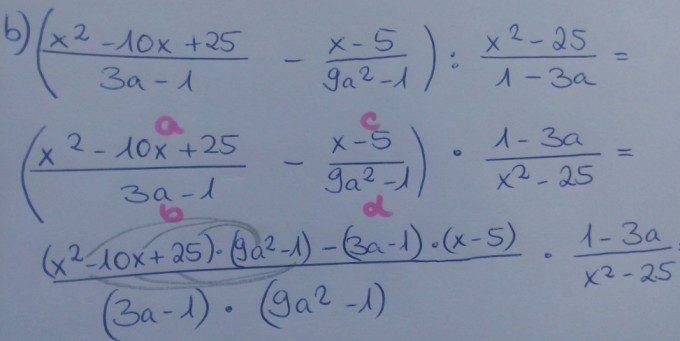 b) ( (x² - 10x + 25)/(3a - 1) - (x - 5)/(9a² - 1) ) : (x² - 25)/(1 - 3a) =
a c
( (x² - 10x + 25)/(3a - 1) - (x - 5)/(9a² - 1) ) · (1 - 3a)/(x² - 25) =
b d
((x² - 10x + 25) · (9a² - 1) - (3a - 1) · (x - 5))/((3a - 1) · (9a² - 1)) · (1 - 3a)/(x² - 25) =